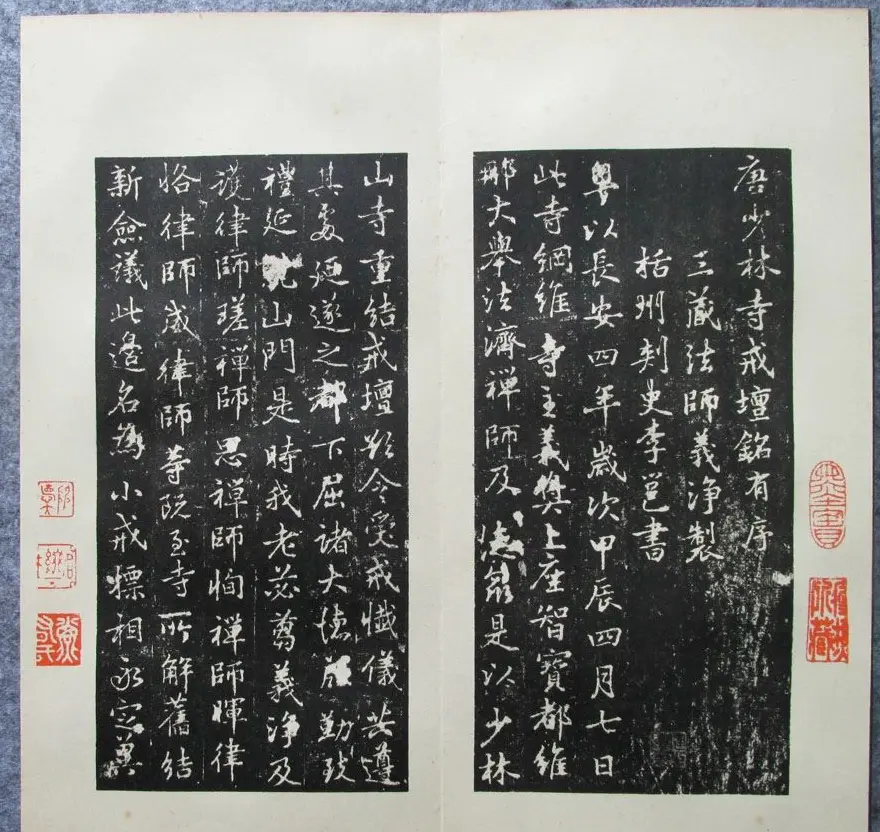 唐少林寺戒壇銘有序
三藏法師義淨製
括州刺史李邕書
粵以長安四年歲次甲辰四月七日
此寺綱維寺主義奬上座智寶都維
那大舉法濟禪師及德衆是以少林
山寺重結戒壇欲令受戒懺儀共遵
其處延遂之都下屈諸大德勤致
禮延山門是時我老苾芻義淨及
護律師瑳禪師思禪師恂禪師暉律
恪律師威律師等既至寺所解舊結
新僉議此邊名爲小戒標相永定冀